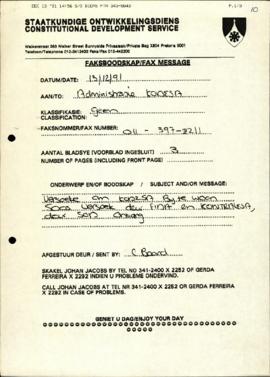 DEC 13 '91 14:56 S/O DIENS PTA 341-8642 P.1/3
10
STAATKUNDIGE ONTWIKKELINGSDIENS
CONSTITUTIONAL DEVELOPMENT SERVICE
Walkerstraat 260 Walker Street Sunnyside Privaatsak/Private Bag X804 Pretoria 0001
FAKSBOODSKAP/FAX MESSAGE
DATUM/DATE: 13/12/91
AAN/TO: Administrasie KODESA
KLASSIFIKASIE: Geen
CLASSIFICATION:
FAKSNOMMER/FAX NUMBER:
011 - 397-2211
AANTAL BLADSYE (VOORBLAD INGESLUIT) 3
NUMBER OF PAGES (INCLUDING FRONT PAGE)
ONDERWERP EN/OF BOODSKAP / SUBJECT AND/OR MESSAGE:
Versoeke om KODESA By te woon
Soos Versoek deur FINA en
deur SOD Ontvang
AFGESTUUR DEUR / SENT BY: C. Board
SKAKEL JOHAN JACOBS BY TEL NO 341-2400 X 2252 OF GERDA
FERREIRA X 2292 INDIEN U PROBLEME ONDERVIND.
CALL JOHAN JACOBS AT TEL NR 341-2400 X 2252 OR GERDA
FERREIRA X 2292 IN CASE OF PROBLEMS.
GENIET U DAG/ENJOY YOUR DAY